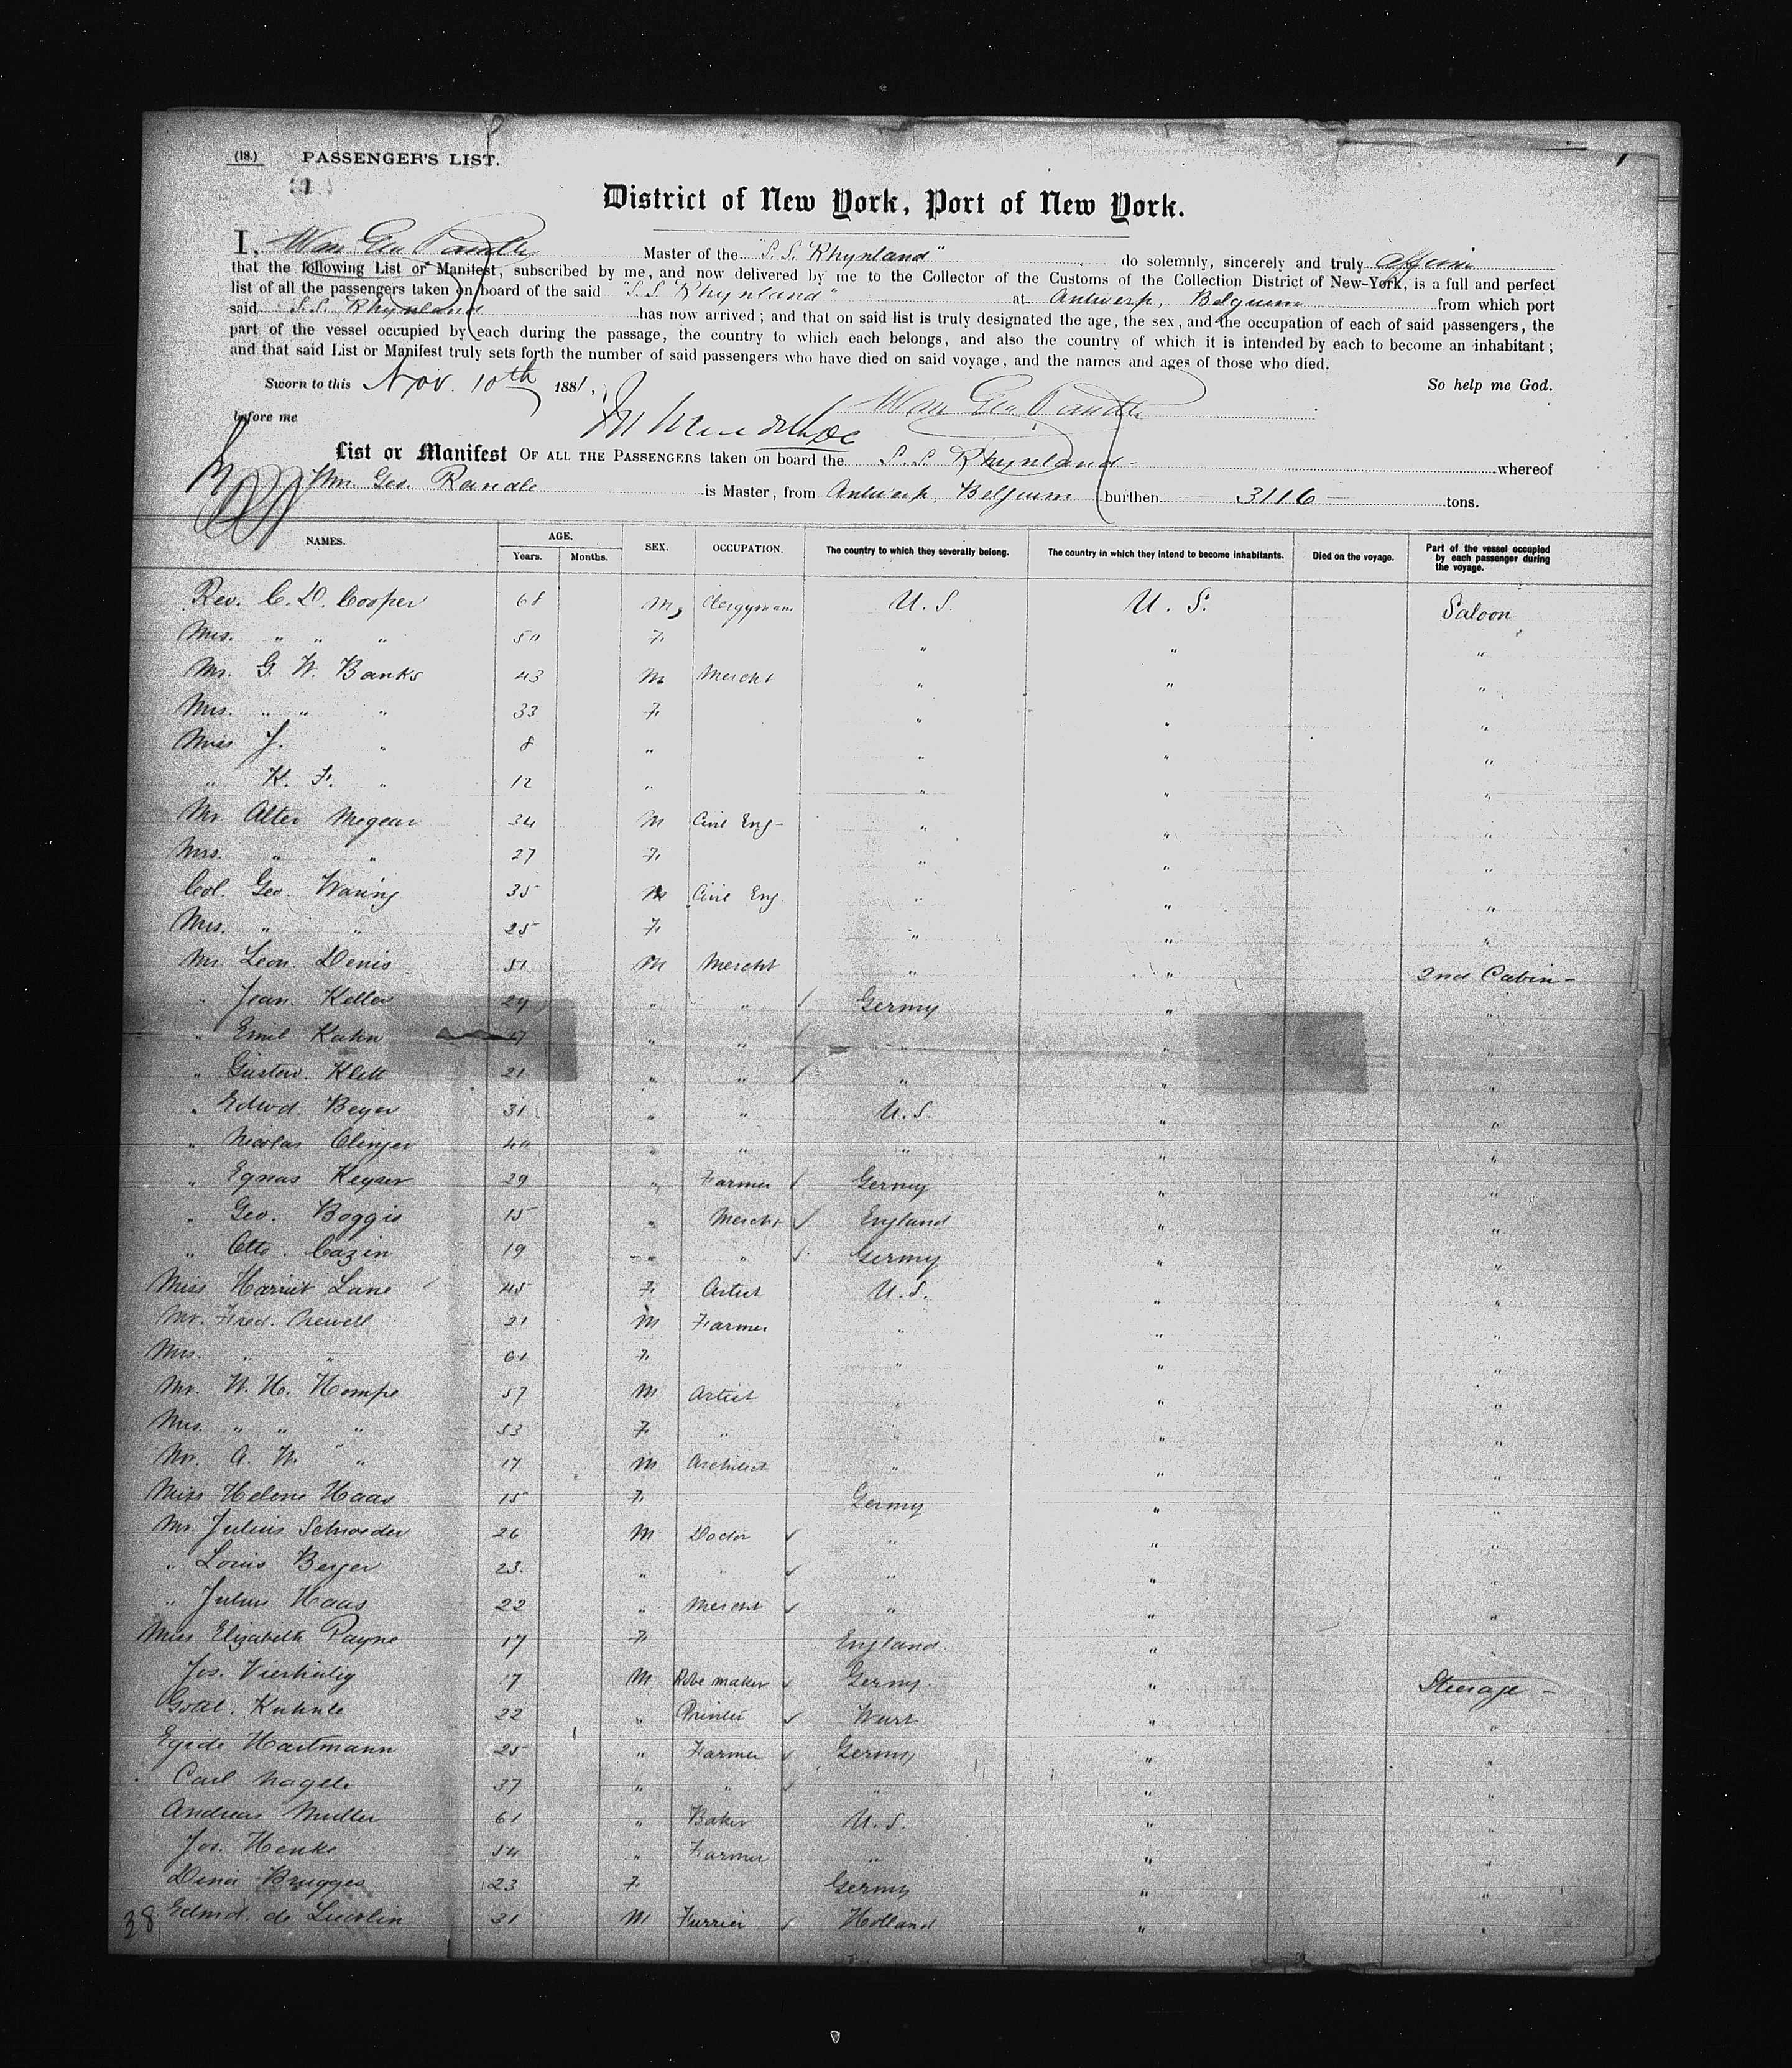 (18.) PASSENGER'S LIST.
District of New York, Port of New York.
I, Wm Geo Randle Master of the "S.S. Rhynland" do solemnly, sincerely and truly affirm
that the following List or Manifest, subscribed by me, and now delivered by me to the Collector of the Customs of the Collection District of New-York, is a full and perfect
list of all the passengers taken on board of the said "S.S. Rhynland" at Antwerp, Belgium from which port
said S.S. Rhynland has now arrived; and that on said list is truly designated the age, the sex, and the occupation of each of said passengers, the
part of the vessel occupied by each during the passage, the country to which each belongs, and also the country of which it is intended by each to become an inhabitant;
and that said List or Manifest truly sets forth the number of said passengers who have died on said voyage, and the names and ages of those who died.
Sworn to this Nov. 10th 1881. So help me God.
before me Wm Geo Randle
List or Manifest OF ALL THE PASSENGERS taken on board the S.S. Rhynland whereof
Wm. Geo. Randle is Master, from Antwerp, Belgium burthen 3116 tons.
NAMES. AGE. Years. Months. SEX. OCCUPATION. The country to which they severally belong. The country in which they intend to become inhabitants. Died on the voyage. Part of the vessel occupied by each passenger during the voyage.
Rev. C. D. Cooper 68 M, Clergyman U.S. U.S. Saloon
Mrs. " " " 50 F. " " "
Mr. G. W. Banks 43 M Mercht " " "
Mrs. " " " 33 F. " " "
Miss J. " 8 " " " "
" K. F. " 12 " " " "
Mr Alter Megear 34 M Civil Eng- " " "
Mrs. " " 27 F. " " "
Col. Geo. Waring 35 M Civil Eng " " "
Mrs. " " 25 F. " " "
Mr Leon Denis 51 M Mercht " " 2nd Cabin -
" Jean Keller 24 " " Germy " "
" Emil Kahn 17 " " " " "
" Gustav. Klett 21 " " " " "
" Edwd. Beyer 31 " " U.S. " "
" Nicolas Olinger 40 " " " " "
" Egnas Keyser 29 " Farmer Germy " "
" Geo. Boggis 15 " Mercht England " "
" Otto. Cazin 19 " " Germy " "
Miss Harriet Lane 45 F. Artist U.S. " "
Mr. Fred. Newell 21 M Farmer " " "
Mrs. " " 61 F. " " "
Mr. W. H. Hompe 57 M Artist " " "
Mrs. " " " 53 F. " " " "
Mr. A. W. " 17 M Architect " " "
Miss Helene Haas 15 F. Germy " "
Mr. Julius Schroeder 26 M Doctor " " "
" Louis Berger 23 " " " " "
" Julius Haas 22 " Mercht " " "
Miss Elizabeth Payne 17 F. England " "
Jos. Vierheilig 17 M Robe maker Germy. " Steerage -
Gottl. Kuhnle 22 " Printer Wurt " "
Egide Hartmann 25 " Farmer Germy " "
Carl Nagele 37 " " " " "
Andreas Muller 61 " Baker U.S. " "
Jos. Henke 54 " Farmer " " "
Dina Brugges 23 F. Germy " "
38 Edmd. de 31 M Furrier Holland " "